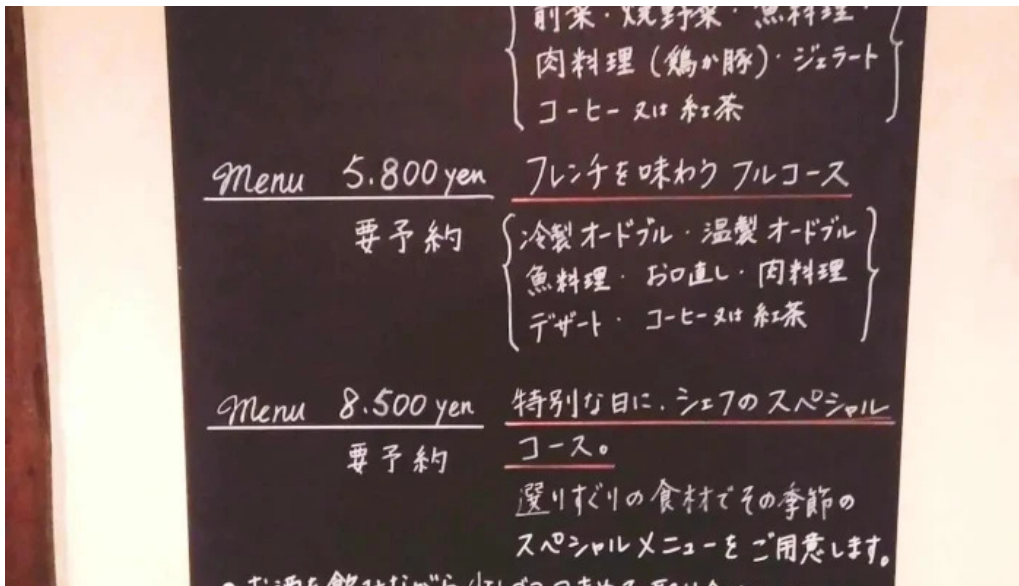 前菜・焼野菜・魚料理・
肉料理(鶏か豚)・ジェラート
コーヒー又は紅茶
Menu 5.800yen フレンチを味わう フルコース
要予約
冷製オードブル・温製オードブル
魚料理・お口直し・肉料理
デザート・コーヒー又は紅茶
Menu 8.500yen 特別な日に、シェフのスペシャル
コース。
要予約
選りすぐりの食材でその季節の
スペシャルメニューをご用意します。
お酒を飲みながら